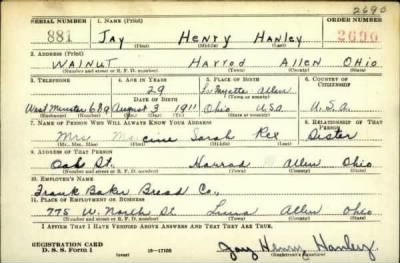 2690
SERIAL NUMBER 1. NAME (Print) ORDER NUMBER
881 Jay Henry Hanley 2690
(First) (Middle) (Last)
2. ADDRESS (Print)
Walnut Harrod Allen Ohio
(Number and street or R. F. D. number) (Town) (County) (State)
3. TELEPHONE 4. AGE IN YEARS 5. PLACE OF BIRTH 6. COUNTRY OF CITIZENSHIP
29 LaFayette Allen
DATE OF BIRTH (Town) (County)
Westminster 689 August 3 1911 Ohio U.S.A. U.S.A.
(Exchange) (Number) (Mo.) (Day) (Yr.) (State) (Country)
7. NAME OF PERSON WHO WILL ALWAYS KNOW YOUR ADDRESS 8. RELATIONSHIP OF THAT PERSON
Mrs Maxine Sarah Rex Sister
(Mr., Mrs., Miss) (First) (Middle) (Last)
9. ADDRESS OF THAT PERSON
Oak St. Harrod Allen Ohio
(Number and street or R. F. D. number) (Town) (County) (State)
10. EMPLOYER'S NAME
Frank Baker Bread Co.,
11. PLACE OF EMPLOYMENT OR BUSINESS
775 W. North St Lima Allen Ohio
(Number and street or R. F. D. number) (Town) (County) (State)
I AFFIRM THAT I HAVE VERIFIED ABOVE ANSWERS AND THAT THEY ARE TRUE.
REGISTRATION CARD
D. S. S. FORM 1 16-17105 Jay Henry Hanley
(Registrant's signature)